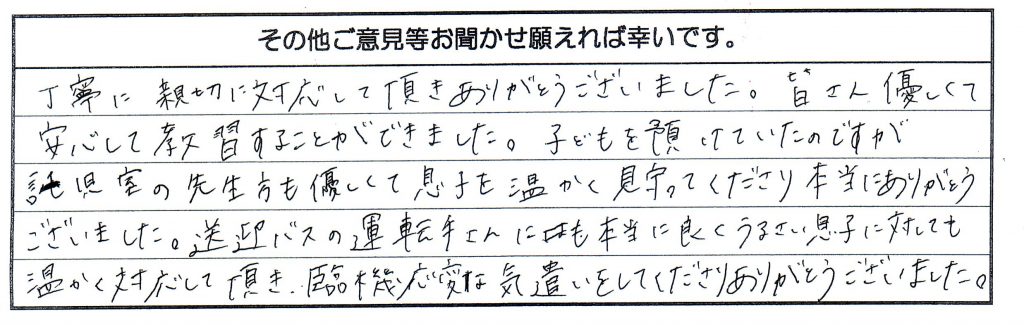 その他ご意見等お聞かせ願えれば幸いです。
丁寧に 親切に対応して頂きありがとうございました。皆さん優しくて
安心して教習することができました。子どもを預けていたのですが
託児室の先生方も優しくて息子を温かく見守ってくださり本当にありがとう
ございました。送迎バスの運転手さんにも本当に良くうるさい息子に対しても
温かく対応して頂き、臨機応変な気遣いをしてくださりありがとうございました。